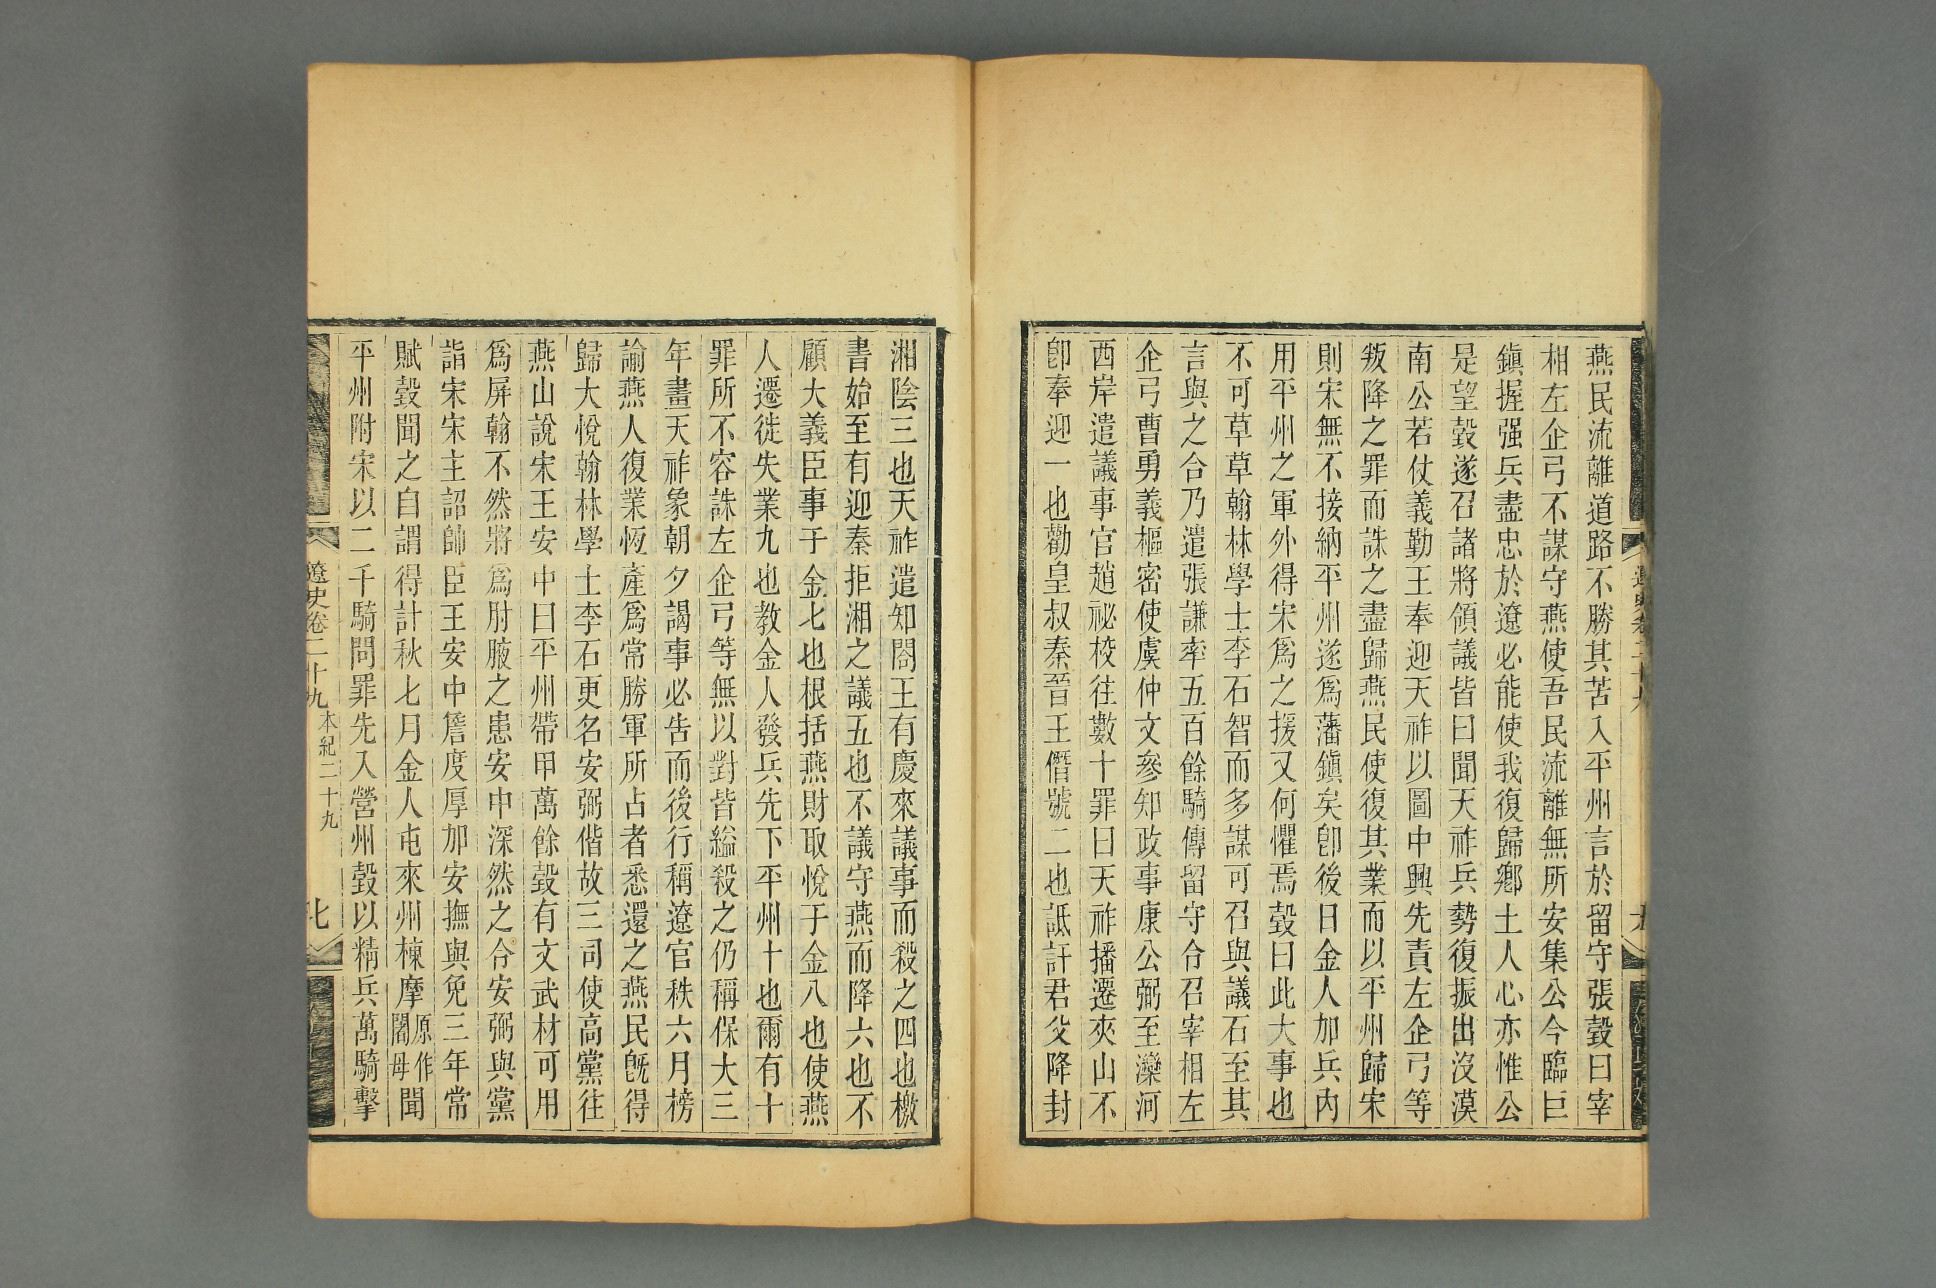 燕民流離道路不勝其苦入平州言於留守張瑴曰宰
相左企弓不謀守燕使吾民流離無所安集公今臨巨
鎮握强兵盡忠於遼必能使我復歸鄉土人心亦惟公
是望瑴遂召諸將領議皆曰聞天祚兵勢復振出沒漠
南公若仗義勤王奉迎天祚以圖中興先責左企弓等
叛降之罪而誅之盡歸燕民使復其業而以平州歸宋
則宋無不接納平州遂爲藩鎮矣卽後日金人加兵內
用平州之軍外得宋爲之援又何懼焉瑴曰此大事也
不可草草翰林學士李石智而多謀可召與議石至其
言與之合乃遣張謙率五百餘騎傳留守令召宰相左
企弓曹勇義樞密使虞仲文參知政事康公弼至灤河
西岸遣議事官趙祕校往數十罪曰天祚播遷夾山不
卽奉迎一也勸皇叔秦晉王僭號二也詆訐君父降封
湘陰三也天祚遣知閤王有慶來議事而殺之四也檄
書始至有迎秦拒湘之議五也不議守燕而降六也不
顧大義臣事于金七也根括燕財取悅于金八也使燕
人遷徙失業九也教金人發兵先下平州十也爾有十
罪所不容誅左企弓等無以對皆縊殺之仍稱保大三
年畫天祚象朝夕謁事必告而後行稱遼官秩六月榜
諭燕人復業恆產爲常勝軍所占者悉還之燕民旣得
歸大悅翰林學士李石更名安弼偕故三司使高黨往
燕山說宋王安中曰平州帶甲萬餘瑴有文武材可用
爲屏翰不然將爲肘腋之患安中深然之令安弼與黨
詣宋宋主詔帥臣王安中詹度厚加安撫與免三年常
賦瑴聞之自謂得計秋七月金人屯來州棟摩原作闍母聞
平州附宋以二千騎問罪先入營州瑴以精兵萬騎擊
遼史卷二十九 本紀二十九 七